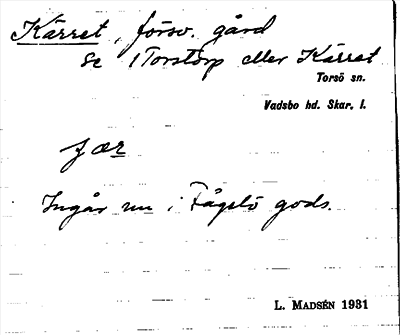 Kärret, försv. gård
se 1 Torstorp eller Kärret
Torsö sn.
Vadsbo hd. Skar. l.
fær
Ingår nu i Fågelö gods.
L. MADSÉN 1931